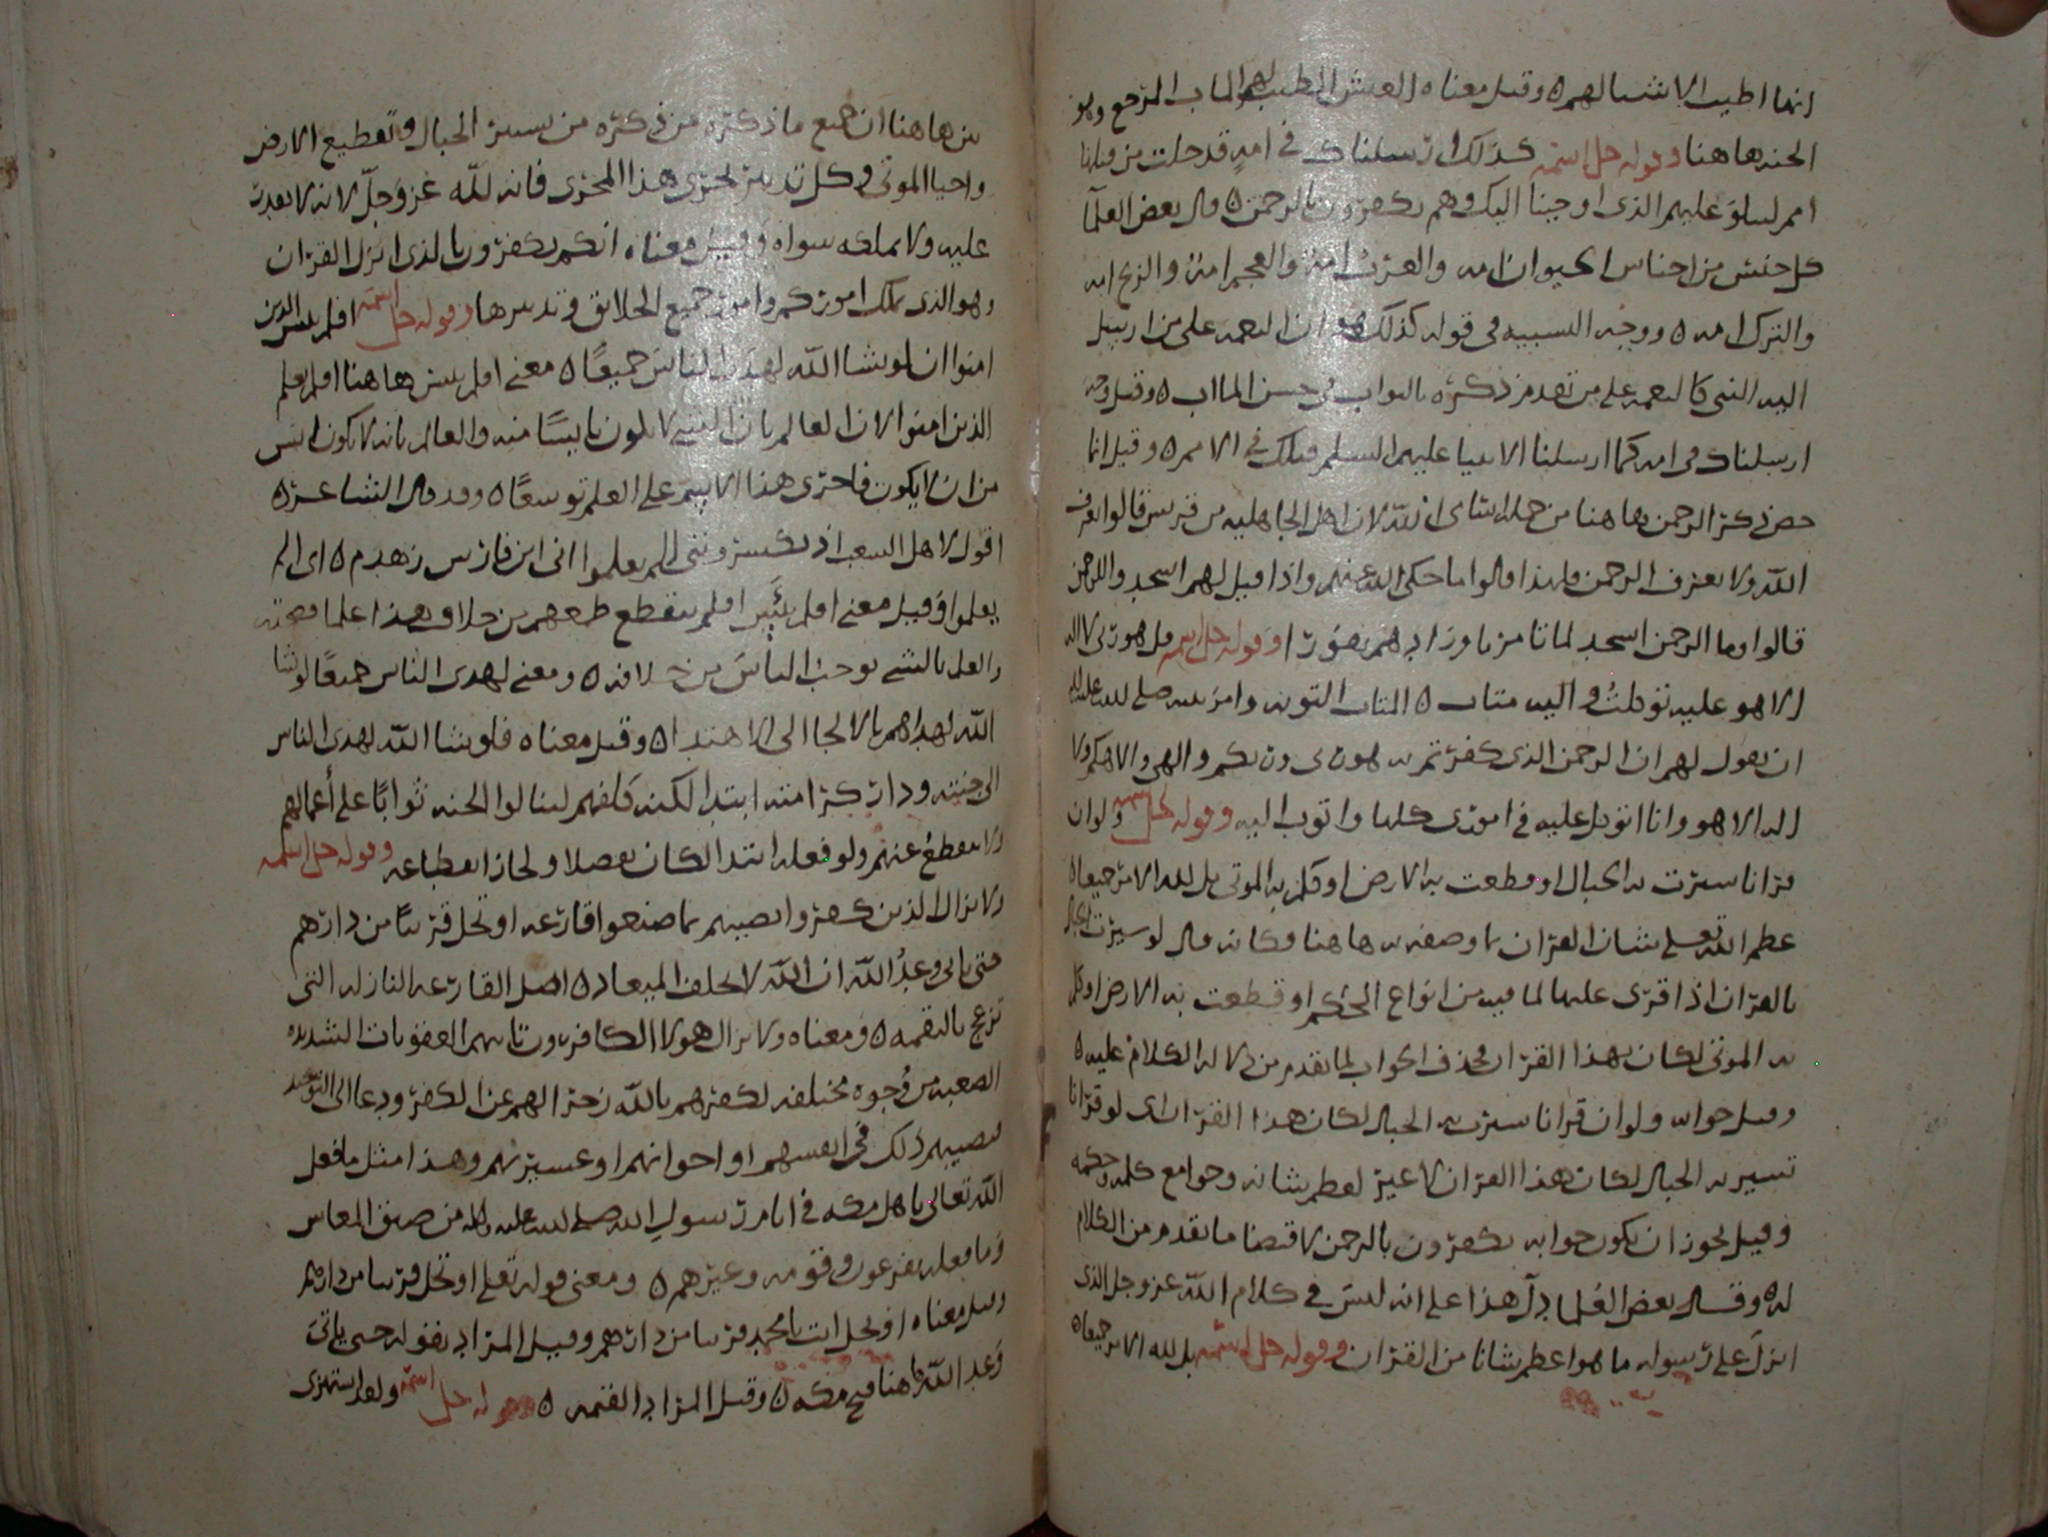 انها اطيب الاشيا لهم ه وقيل معناه العيش الطيب لهم المآب المرجع وهو
الجنه هاهنا وقوله جل اسمه كذلك ارسلناك في امة قد خلت من قبلها
امم لتتلو عليهم الذي اوحينا اليك وهم يكفرون بالرحمن ه قال بعض العلمآ
كل جنس من اجناس الحيوان امه والعرب امة والعجم امة والزنج امه
والترك امه ه ووجه التشبيه في قوله كذلك هو ان النعمه على من ارسل
اليه النبي كالنعمه على من تقدم ذكره بالثواب في حسن المااب ه وقيل وجه
ارسلناك في امه كما ارسلنا الانبيا عليهم السلم قبلك في الامم ه وقيل انما
خص ذكر الرحمن هاهنا من جملة اسماى الله لان اهل الجاهليه من قريش قالوا نعرف
الله ولا نعرف الرحمن ولهذا قالوا ما حكى الله عنهم واذا قيل لهم اسجدوا للرحمن
قالوا وما الرحمن انسجد لما تامرنا وزادهم نفورا وقوله جل اسمه قل هو ربي لا اله
الا هو عليه توكلت واليه متاب ه المتاب التوبه وامر نبيه صلى الله عليه
ان يقول لهم ان الرحمن الذي كفرتم به هو ربي وربكم والهي والاهكم ولا
اله الا هو وانا اتوكل عليه في اموري كلها واتوب اليه وقوله جل اسمه ولو ان
قرانا سيرت به الجبال او قطعت به الارض او كلم به الموتى بل لله الامر جميعا ه
عظم الله تعلى شان القران بما وصفه به هاهنا وكانه قال لو سيرت الجبال
بالقران اذا قرى عليها لما فيه من انواع الحكم او قطعت به الارض او كلم
به الموتى لكان بهذا القران فحذف الجواب لما تقدم من دلاله الكلام عليه ه
وقيل جوابه ولو ان قرانا سيرت به الجبال لكان هذا القران اى لو قرانا
تسير به الجبال لكان هذا القران لا غير لعظم شانه وجوامع كلمه وحكمه
وقيل يجوز ان يكون جوابه يكفرون بالرحمن لاقتضا ما تقدم من الكلام
له ه وقال بعض العلما دل هذا على انه ليس في كلام الله عز وجل الذي
انزل على رسوله ما هو اعظم شانا من القران وقوله جل اسمه بل لله الامر جميعا ه
من هاهنا ان جميع ما ذكره من ذكره من سير الجبال وتقطيع الارض
واحيا الموتى وكل تدبير يجرى هذا المجرى فانه لله عز وجل لانه لا يقدر
عليه ولا يملكه سواه وقيل معناه انكم تكفرون بالذى انزل القران
وهو الذى يملك اموركم وامور جميع الخلايق وتدبيرها وقوله جل اسمه افلم ييئس الذين
امنوا ان لو يشا الله لهدى الناس جميعًا ه معنى افلم ييئس هاهنا افلم يعلم
الذين امنوا لان العالم بان الشى لا يكون يايسًا منه والعالم بانه لا يكون ايس
من ان لا يكون فاجرى هذا الاسم على العلم توسعًا ه وقد قال الشاعر ه
اقول لاهل الشعب اذ يكسرونني الم يعلموا اني ابن فارس زهدم ه اى الم
يعلموا وقيل معنى افلم ييئس افلم ينقطع طمعهم من خلاف هذا علما بصحته
والعلم بالشى يوجب الياس من خلافه ه ومعنى لهدى الناس جميعًا لو شا
الله لهداهم بالالجا الى الاهتدا ه وقيل معناه فلو يشا الله لهدى الناس
الى جنته ودار كرامته ابتدا لكنه كلفهم لينالوا الجنه ثوابًا على أعمالهم
ولا يقطع عنهم ولو فعله ابتدا لكان تفضلا ولجاز انقطاعه وقوله جل اسمه
ولا يزال الذين كفروا تصيبهم بما صنعوا قارعه او تحل قريبًا من دارهم
حتى ياتي وعد الله ان الله لا يخلف الميعاد ه اصل القارعه النازله التى
تزعج بالنقمه ه ومعناه ولا يزال هولا الكافرون تاتيهم العقوبات الشديده
الصعبه من وجوه مختلفه لكفرهم بالله زجرا لهم عن الكفر ودعا الى التوحيد
فتصيبهم ذلك في انفسهم او اخوانهم او عسيرتهم وهذا مثل ما فعل
الله تعالى باهل مكه في ايام رسول الله صلى الله عليه واله من ضيق المعاش
وما فعله بفرعون وقومه وغيرهم ه ومعنى قوله تعلى او تحل قريبا من دارهم
وقيل معناه او تحل انت يا محمد قريبا من دارهم وقيل المراد بقوله حتى ياتي
وعد الله هاهنا فتح مكه ه وقيل المراد القيمه ه وقوله جل اسمه ولقد استهزى